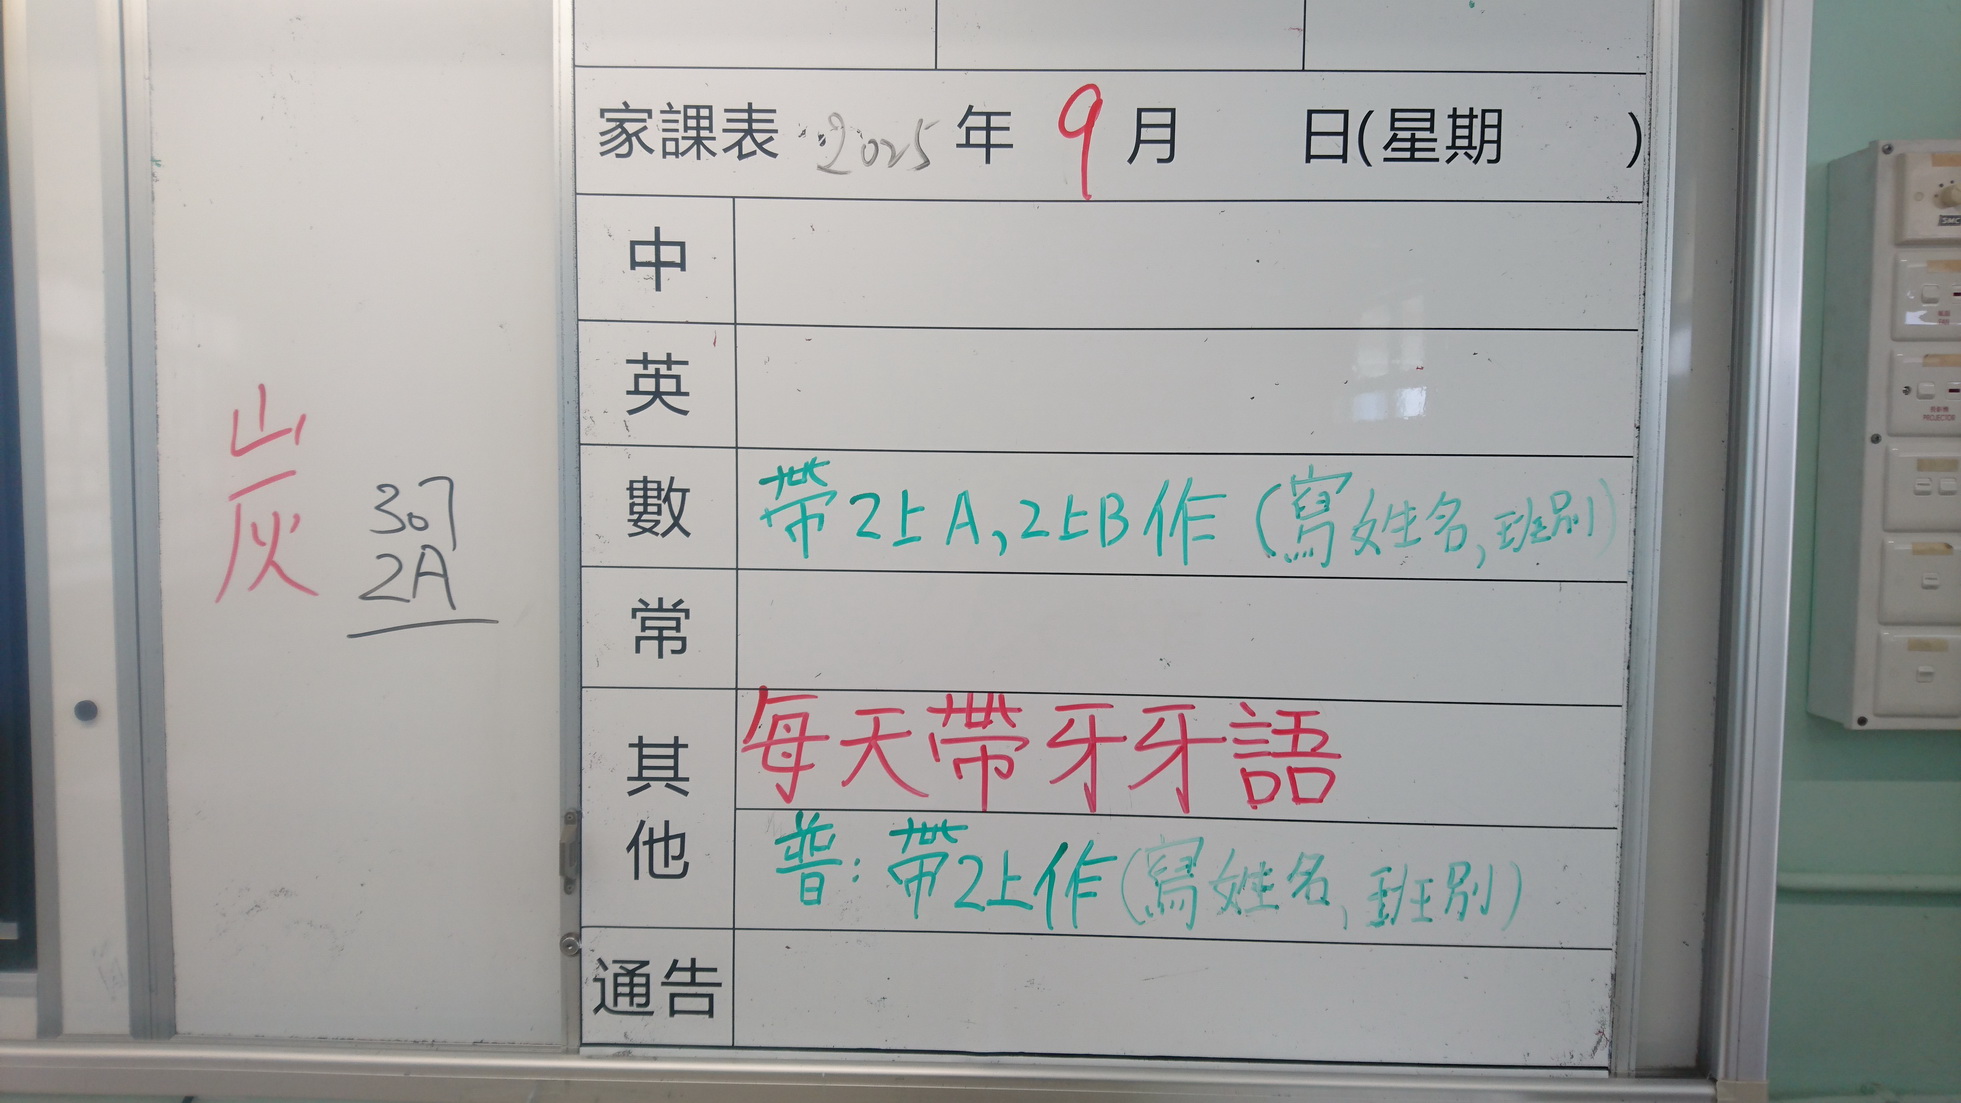 炭
307
2A
家課表 2025 年 9 月 日(星期 )
中
英
數 帶2上A,2上B作(寫姓名,班別)
常
其他 每天帶牙牙語
普:帶2上作(寫姓名,班別)
通告
PROJECTOR